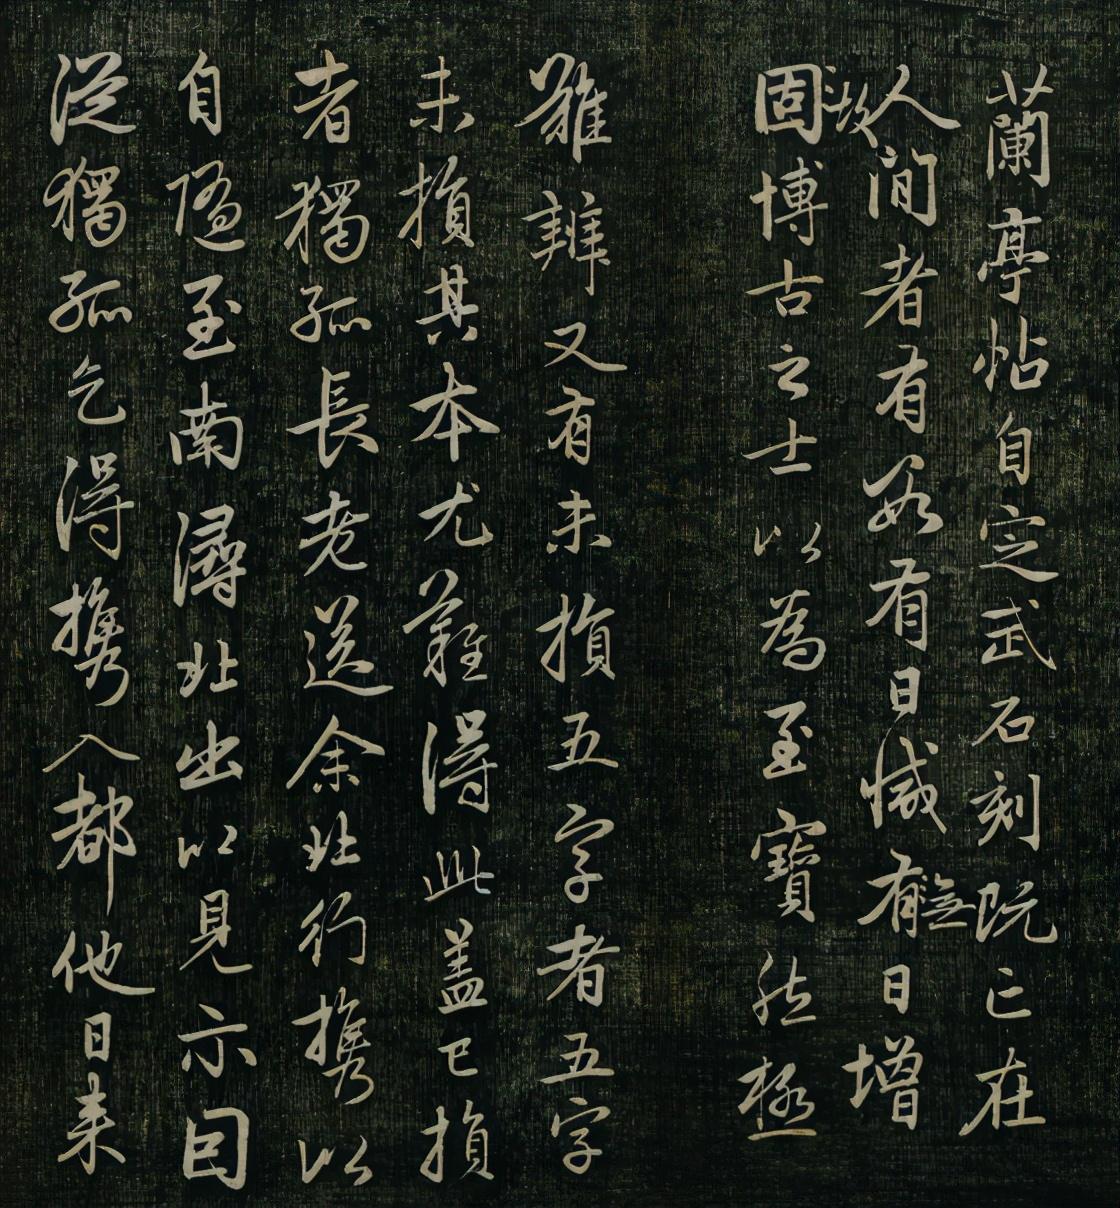 蘭亭帖自定武石刻既亡在
人間者有數有日減有無日增
固故博古之士以為至寶然極
難辨又有未損五字者五字
未損其本尤難得此蓋已損
者獨孤長老送余北行攜以
自隨至南潯北出以見示因
從獨孤乞得攜入都他日來